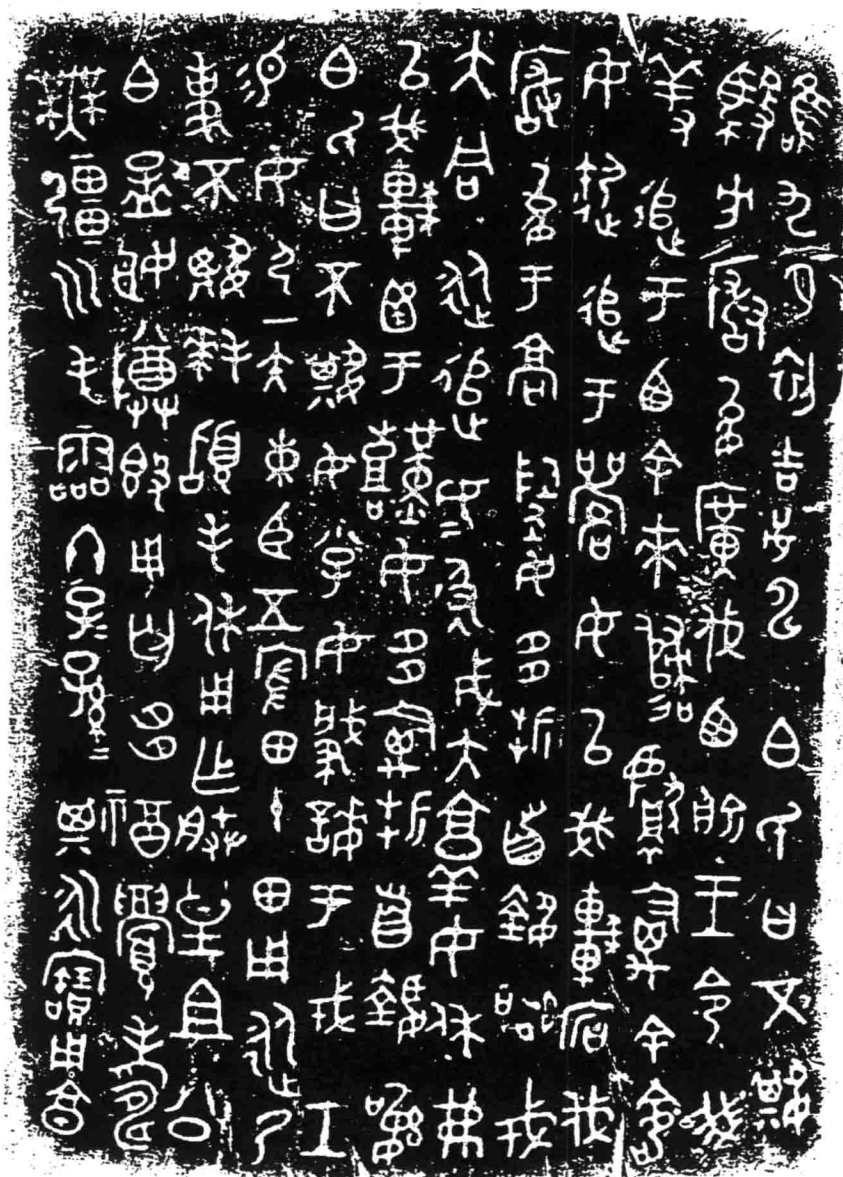 唯九月初吉戊申白氏曰不𡢁
馭方厰允廣伐西俞王令我
羞追于西余來歸獻禽余命
女御追于畧女以我車宕伐
厰允于高陶女多折首執訊戎
大同從追女女及戎大敦搏女休弗
以我車函于艱女多禽折首執訊
白氏曰不𡢁女小子女肇誨于戎工
易女弓一矢束臣五家田十田用從乃
事不𡢁拜稽手休用乍朕皇且公
白孟姬尊簋用匄多福眉壽
無疆永屯霝冬子子孫孫其永寶用享